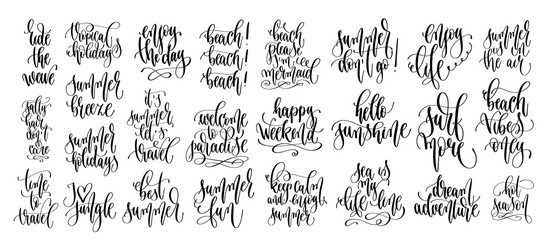 ride
the
wave
salty
hair
don't
care
time
to
travel
tropical
holidays
summer
breeze
summer
holidays
I ♥
jungle
enjoy
the day
it's
summer
let's
travel
best
summer
beach!
beach!
beach!
welcome
to
paradise
summer
fun
beach
please
I'm a
mermaid
happy
weekend
keep calm
and enjoy
summer
summer
don't go!
hello
sunshine
sea is
my
life line
enjoy
life
surf
more
dream
adventure
summer
is in
the air
beach
vibes
only
hot
season